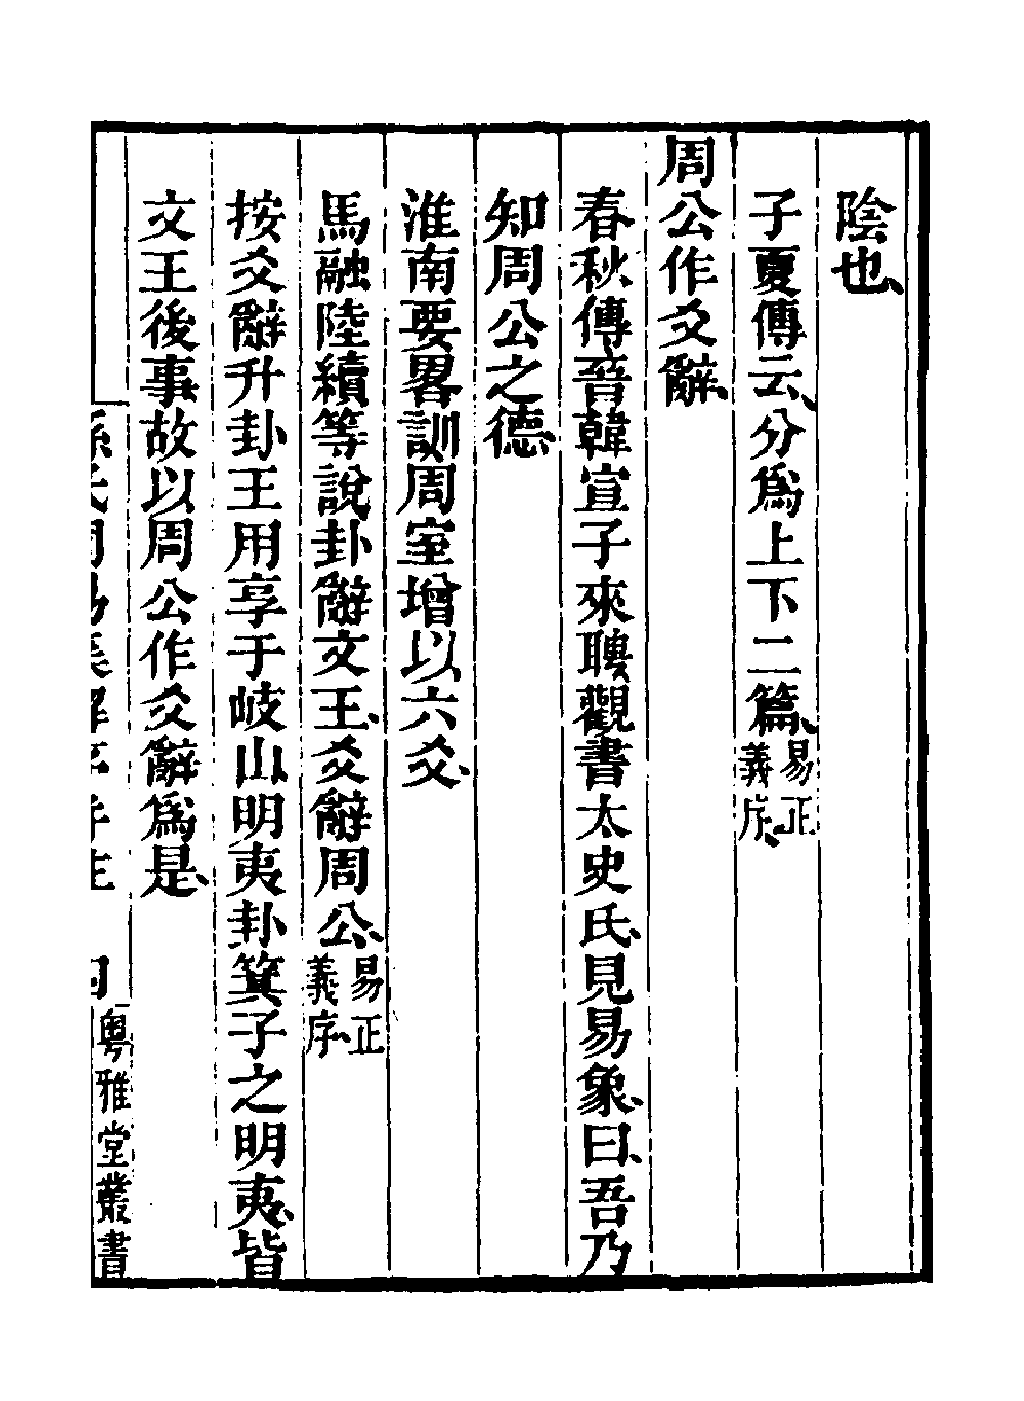 陰也、
子夏傳云、分爲上下二篇、易正義序、
周公作爻辭、
春秋傳、晉韓宣子來聘觀書太史氏、見易象、曰、吾乃
知周公之德、
淮南要畧訓周室增以六爻、
馬融陸績等說卦辭文王、爻辭周公、易正義序、
按爻辭升卦王用享于岐山、明夷卦箕子之明夷、皆
文王後事故以周公作爻辭爲是、
粵雅堂叢書